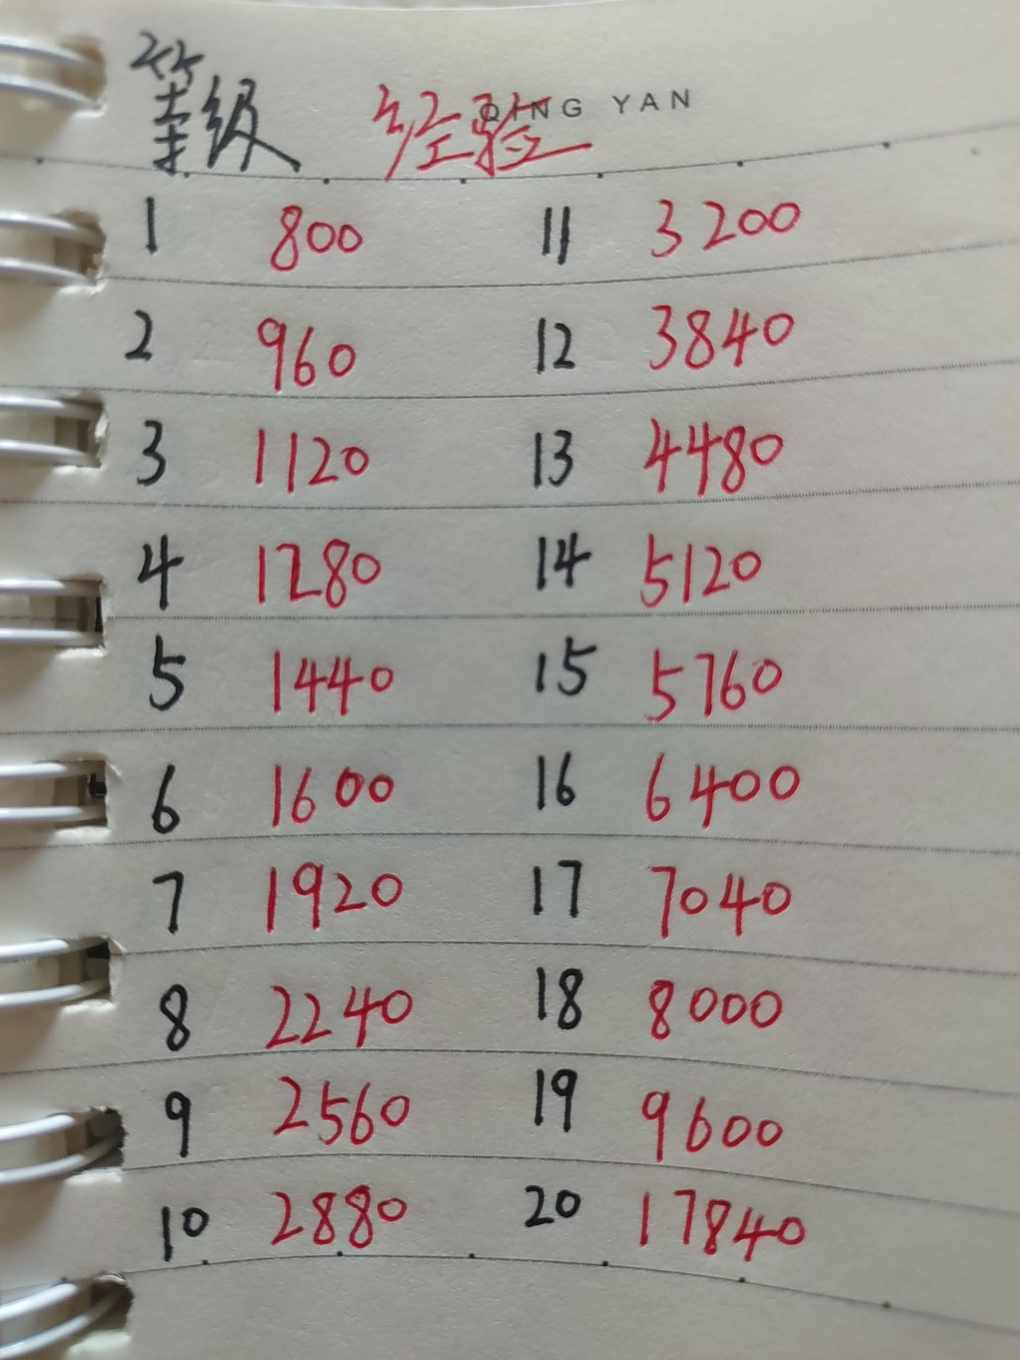 QING YAN
等级 经验
1 800 11 3200
2 960 12 3840
3 1120 13 4480
4 1280 14 5120
5 1440 15 5760
6 1600 16 6400
7 1920 17 7040
8 2240 18 8000
9 2560 19 9600
10 2880 20 17840